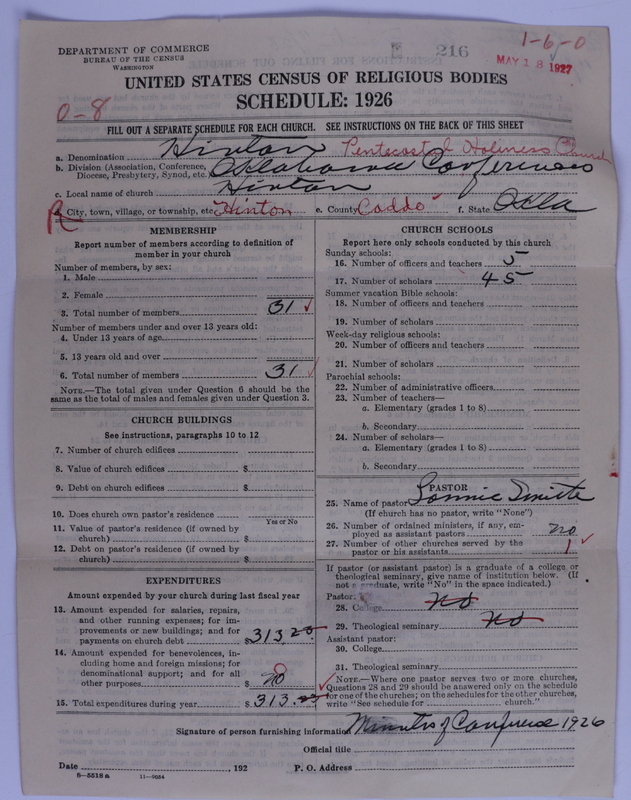 DEPARTMENT OF COMMERCE
BUREAU OF THE CENSUS
WASHINGTON
216
1-6-0
MAY 18 1927
UNITED STATES CENSUS OF RELIGIOUS BODIES
SCHEDULE: 1926
0-8
FILL OUT A SEPARATE SCHEDULE FOR EACH CHURCH. SEE INSTRUCTIONS ON THE BACK OF THIS SHEET
a. Denomination Hinton Pentecostal Holiness Church
b. Division (Association, Conference, Diocese, Presbytery, Synod, etc. Oklahoma Conference
c. Local name of church Hinton
R d. City, town, village, or township, etc. Hinton e. County Caddo f. State Okla
MEMBERSHIP
Report number of members according to definition of
member in your church
Number of members, by sex:
1. Male
2. Female
3. Total number of members 31
Number of members under and over 13 years old:
4. Under 13 years of age
5. 13 years old and over
6. Total number of members 31
NOTE.—The total given under Question 6 should be the
same as the total of males and females given under Question 3.
CHURCH BUILDINGS
See instructions, paragraphs 10 to 12
7. Number of church edifices
8. Value of church edifices $
9. Debt on church edifices $
10. Does church own pastor's residence
Yes or No
11. Value of pastor's residence (if owned by
church) $
12. Debt on pastor's residence (if owned by
church) $
EXPENDITURES
Amount expended by your church during last fiscal year
13. Amount expended for salaries, repairs,
and other running expenses; for im-
provements or new buildings; and for
payments on church debt $ 313 20
14. Amount expended for benevolences, in-
cluding home and foreign missions; for
denominational support; and for all
other purposes $ no 0
15. Total expenditures during year $ 313.
CHURCH SCHOOLS
Report here only schools conducted by this church
Sunday schools:
16. Number of officers and teachers 5
17. Number of scholars 45
Summer vacation Bible schools:
18. Number of officers and teachers
19. Number of scholars
Week-day religious schools:
20. Number of officers and teachers
21. Number of scholars
Parochial schools:
22. Number of administrative officers
23. Number of teachers—
a. Elementary (grades 1 to 8)
b. Secondary
24. Number of scholars—
a. Elementary (grades 1 to 8)
b. Secondary
PASTOR
25. Name of pastor Lonnie
(If church has no pastor, write "None")
26. Number of ordained ministers, if any, em-
ployed as assistant pastors no
27. Number of other churches served by the
pastor or his assistants 1
If pastor (or assistant pastor) is a graduate of a college or
theological seminary, give name of institution below. (If
not a graduate, write "No" in the space indicated.)
Pastor:
28. College no
29. Theological seminary no
Assistant pastor:
30. College
31. Theological seminary
NOTE.—Where one pastor serves two or more churches,
Questions 28 and 29 should be answered only on the schedule
for one of the churches; on the schedules for the other churches,
write "See schedule for church."
Signature of person furnishing information Minutes of Conference 1926
Official title
Date , 192 P. O. Address
8—5518 a 11—9054